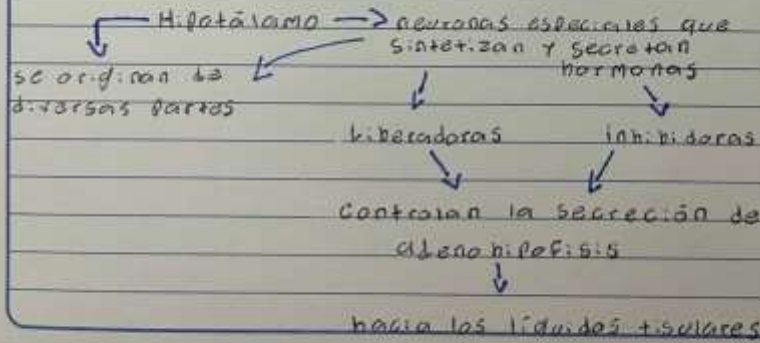 Hipotálamo
neuronas especiales que
sintetizan y secretan
hormonas
se originan de
diversas partes
Liberadoras
inhibidoras
Controlan la secreción de
adenohipofisis
hacia los líquidos tisulares